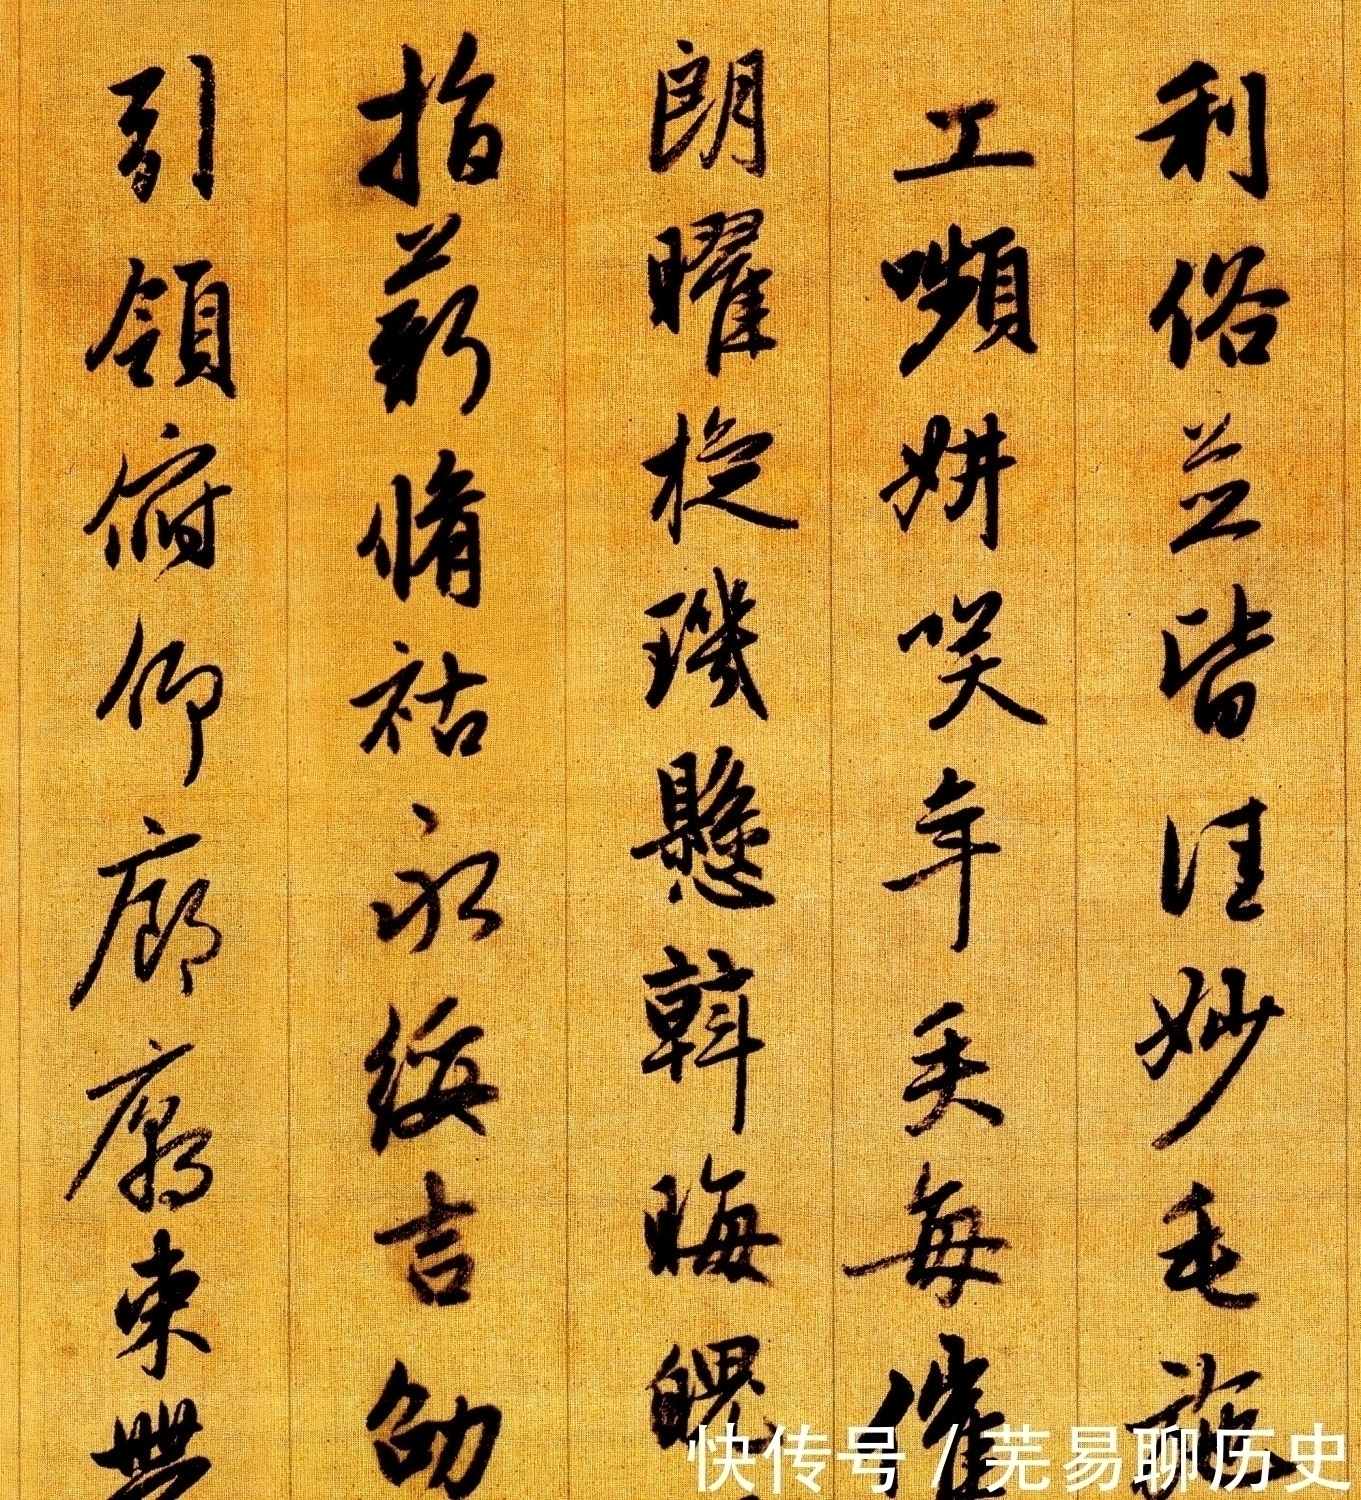 利俗並皆佳妙毛施
工嚬妍笑年矢每催
朗曜旋璣懸斡晦魄
指薪脩祜永綏吉劭
引領俯仰廊廟束
快传号 / 芜易聊历史